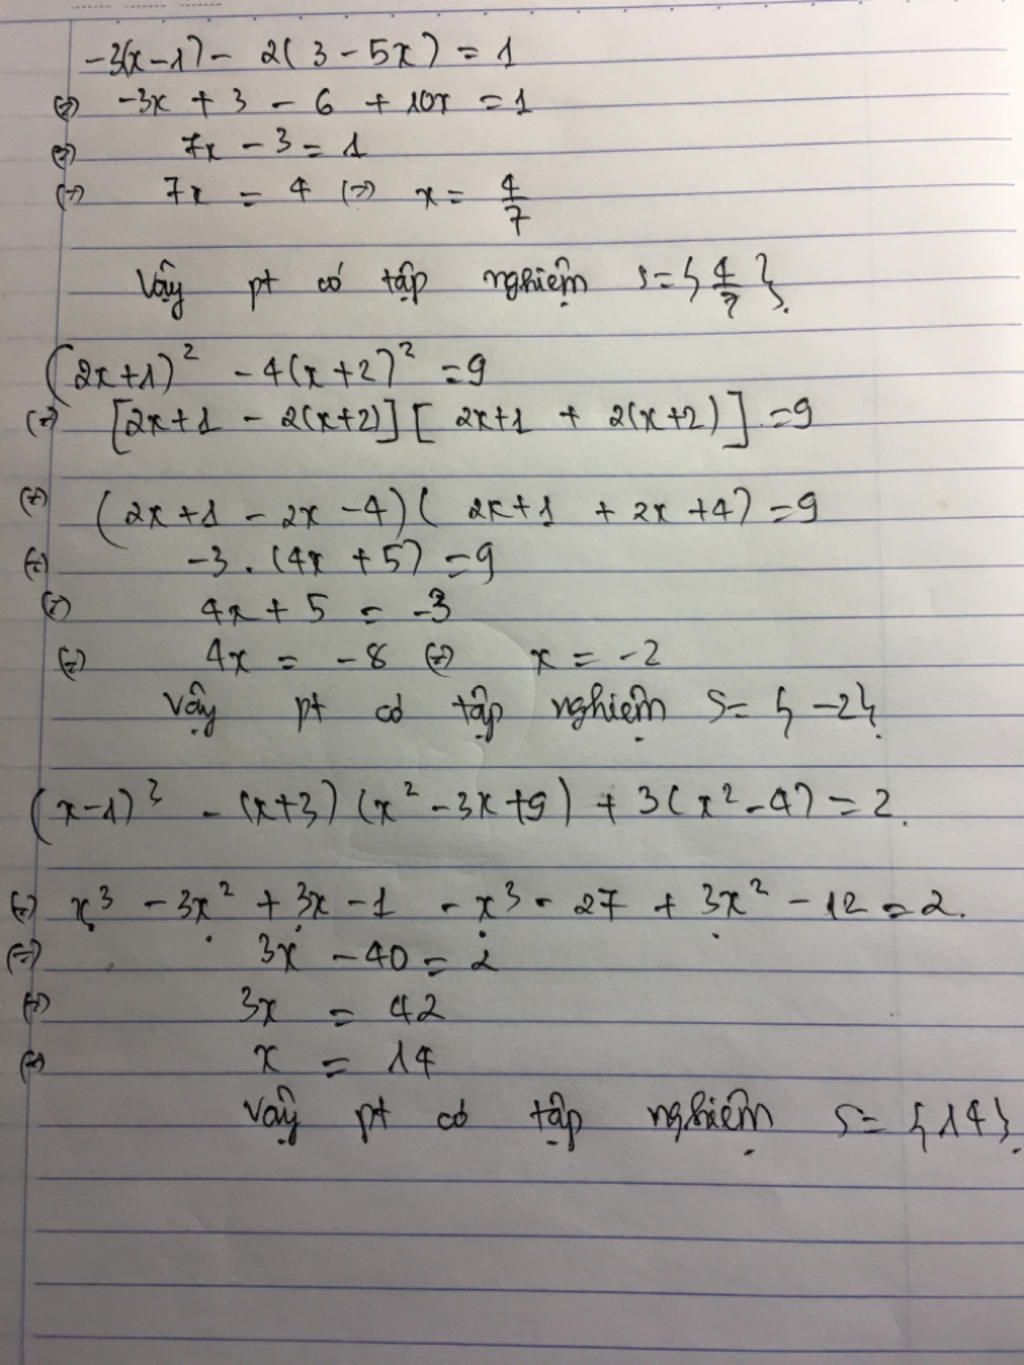 -3(x-1) - 2(3-5x) = 1
(=) -3x + 3 - 6 + 10x = 1
(=) 7x - 3 = 1
(=) 7x = 4 (=) x = 4/7
Vậy pt có tập nghiệm S = { 4/7 }.
(2x+1)² - 4(x+2)² = 9
(=) [2x+1 - 2(x+2)] [2x+1 + 2(x+2)] = 9
(=) (2x+1 - 2x - 4)(2x+1 + 2x+4) = 9
(=) -3 . (4x + 5) = 9
(=) 4x + 5 = -3
(=) 4x = -8 (=) x = -2
Vậy pt có tập nghiệm S = { -2 }.
(x-1)³ - (x+3)(x² - 3x+9) + 3(x² - 4) = 2.
(=) x³ - 3x² + 3x - 1 - x³ - 27 + 3x² - 12 = 2.
(=) 3x - 40 = 2
(=) 3x = 42
(=) x = 14
Vậy pt có tập nghiệm S = {14}.